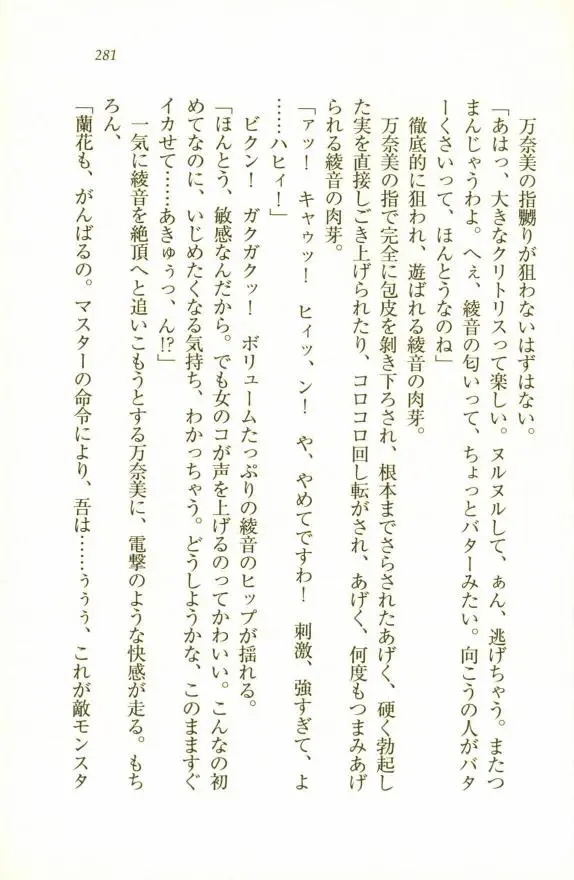 281
万奈美の指嬲りが狙わないはずはない。
「あはっ、大きなクリトリスって楽しい。ヌルヌルして、ぁん、逃げちゃう。またつ
まんじゃうわよ。へぇ、綾音の匂いって、ちょっとバターみたい。向こうの人がバタ
ーくさいって、ほんとうなのね」
徹底的に狙われ、遊ばれる綾音の肉芽。
万奈美の指で完全に包皮を剝き下ろされ、根本までさらされたあげく、硬く勃起し
た実を直接しごき上げられたり、コロコロ回し転がされ、あげく、何度もつまみあげ
られる綾音の肉芽。
「ァッ！　キャゥッ！　ヒィッ、ン！　や、やめてですわ！　刺激、強すぎて、よ
……ハヒィ！」
ビクン！　ガクガクッ！　ボリュームたっぷりの綾音のヒップが揺れる。
「ほんとう、敏感なんだから。でも女のコが声を上げるのってかわいい。こんなの初
めてなのに、いじめたくなる気持ち、わかっちゃう。どうしようかな、このまますぐ
イカせて……あきゅぅっ、ん!?」
一気に綾音を絶頂へと追いこもうとする万奈美に、電撃のような快感が走る。もち
ろん、
「蘭花も、がんばるの。マスターの命令により、吾は……ぅぅぅ、これが敵モンスタ